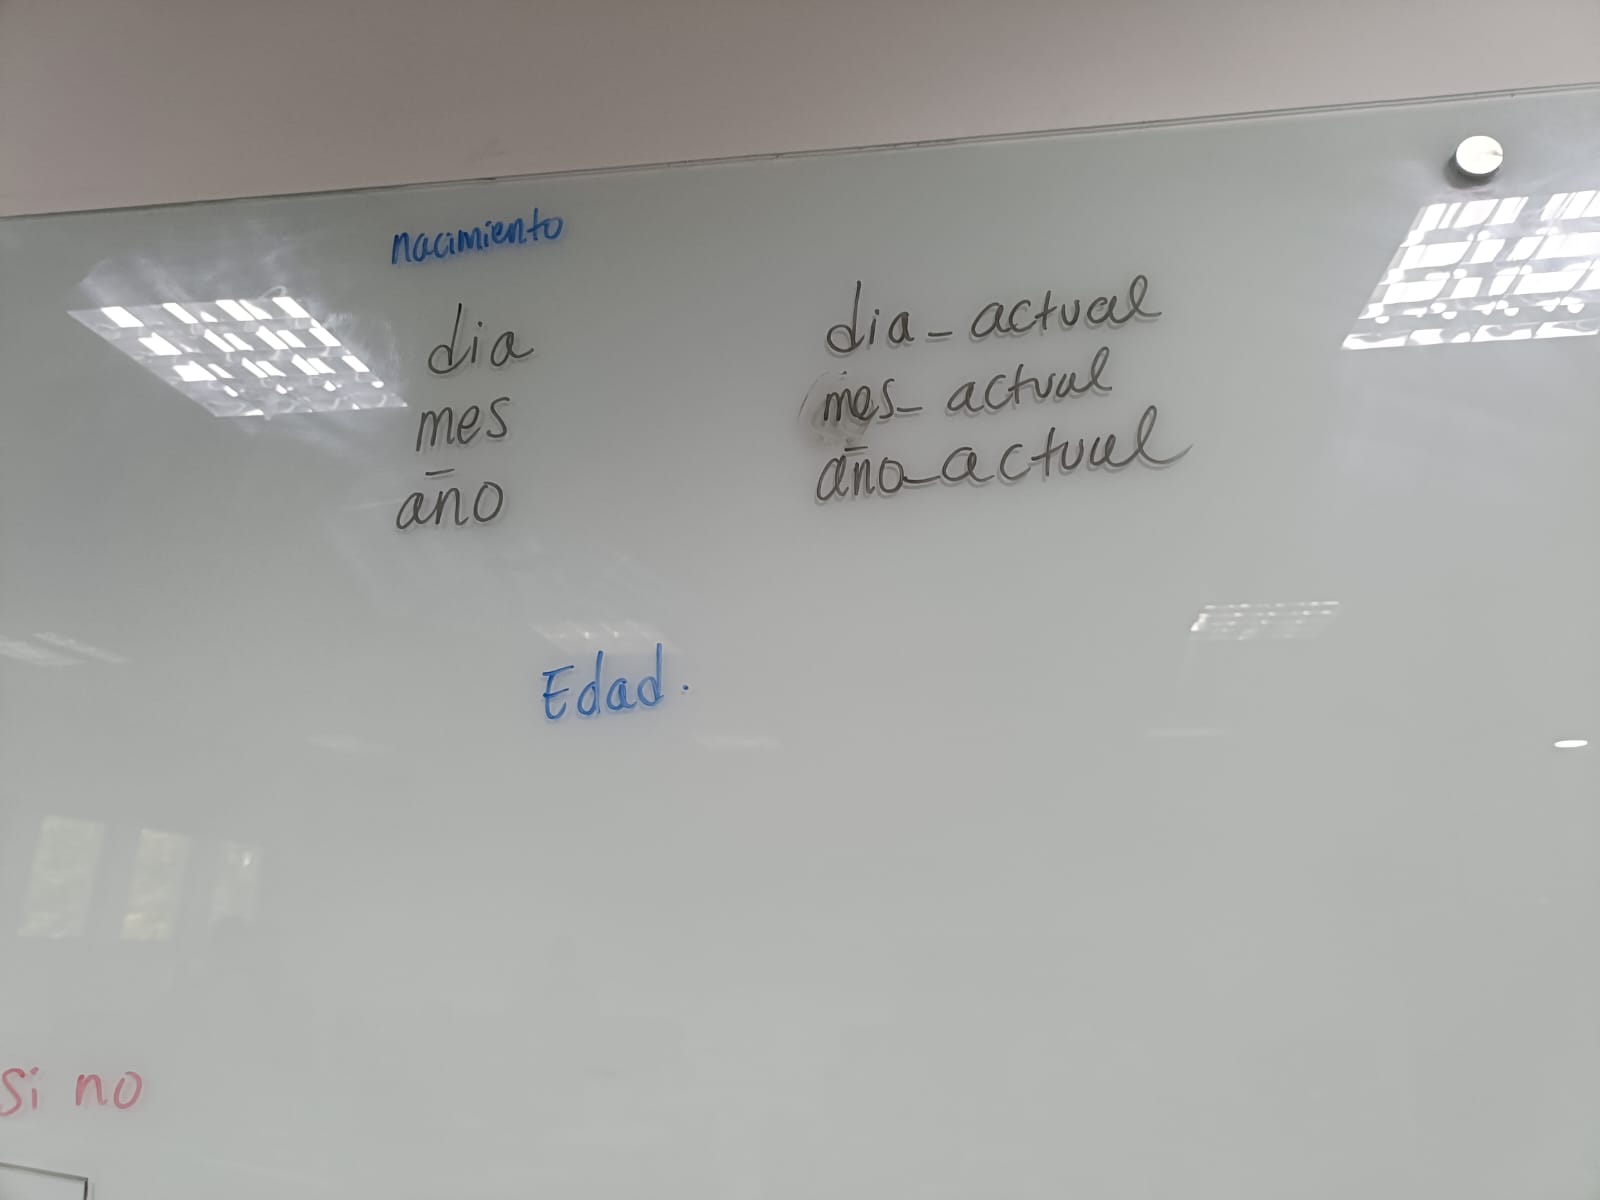 nacimiento
dia
mes
año
dia_actual
mes_actual
año_actual
Edad.
Si no